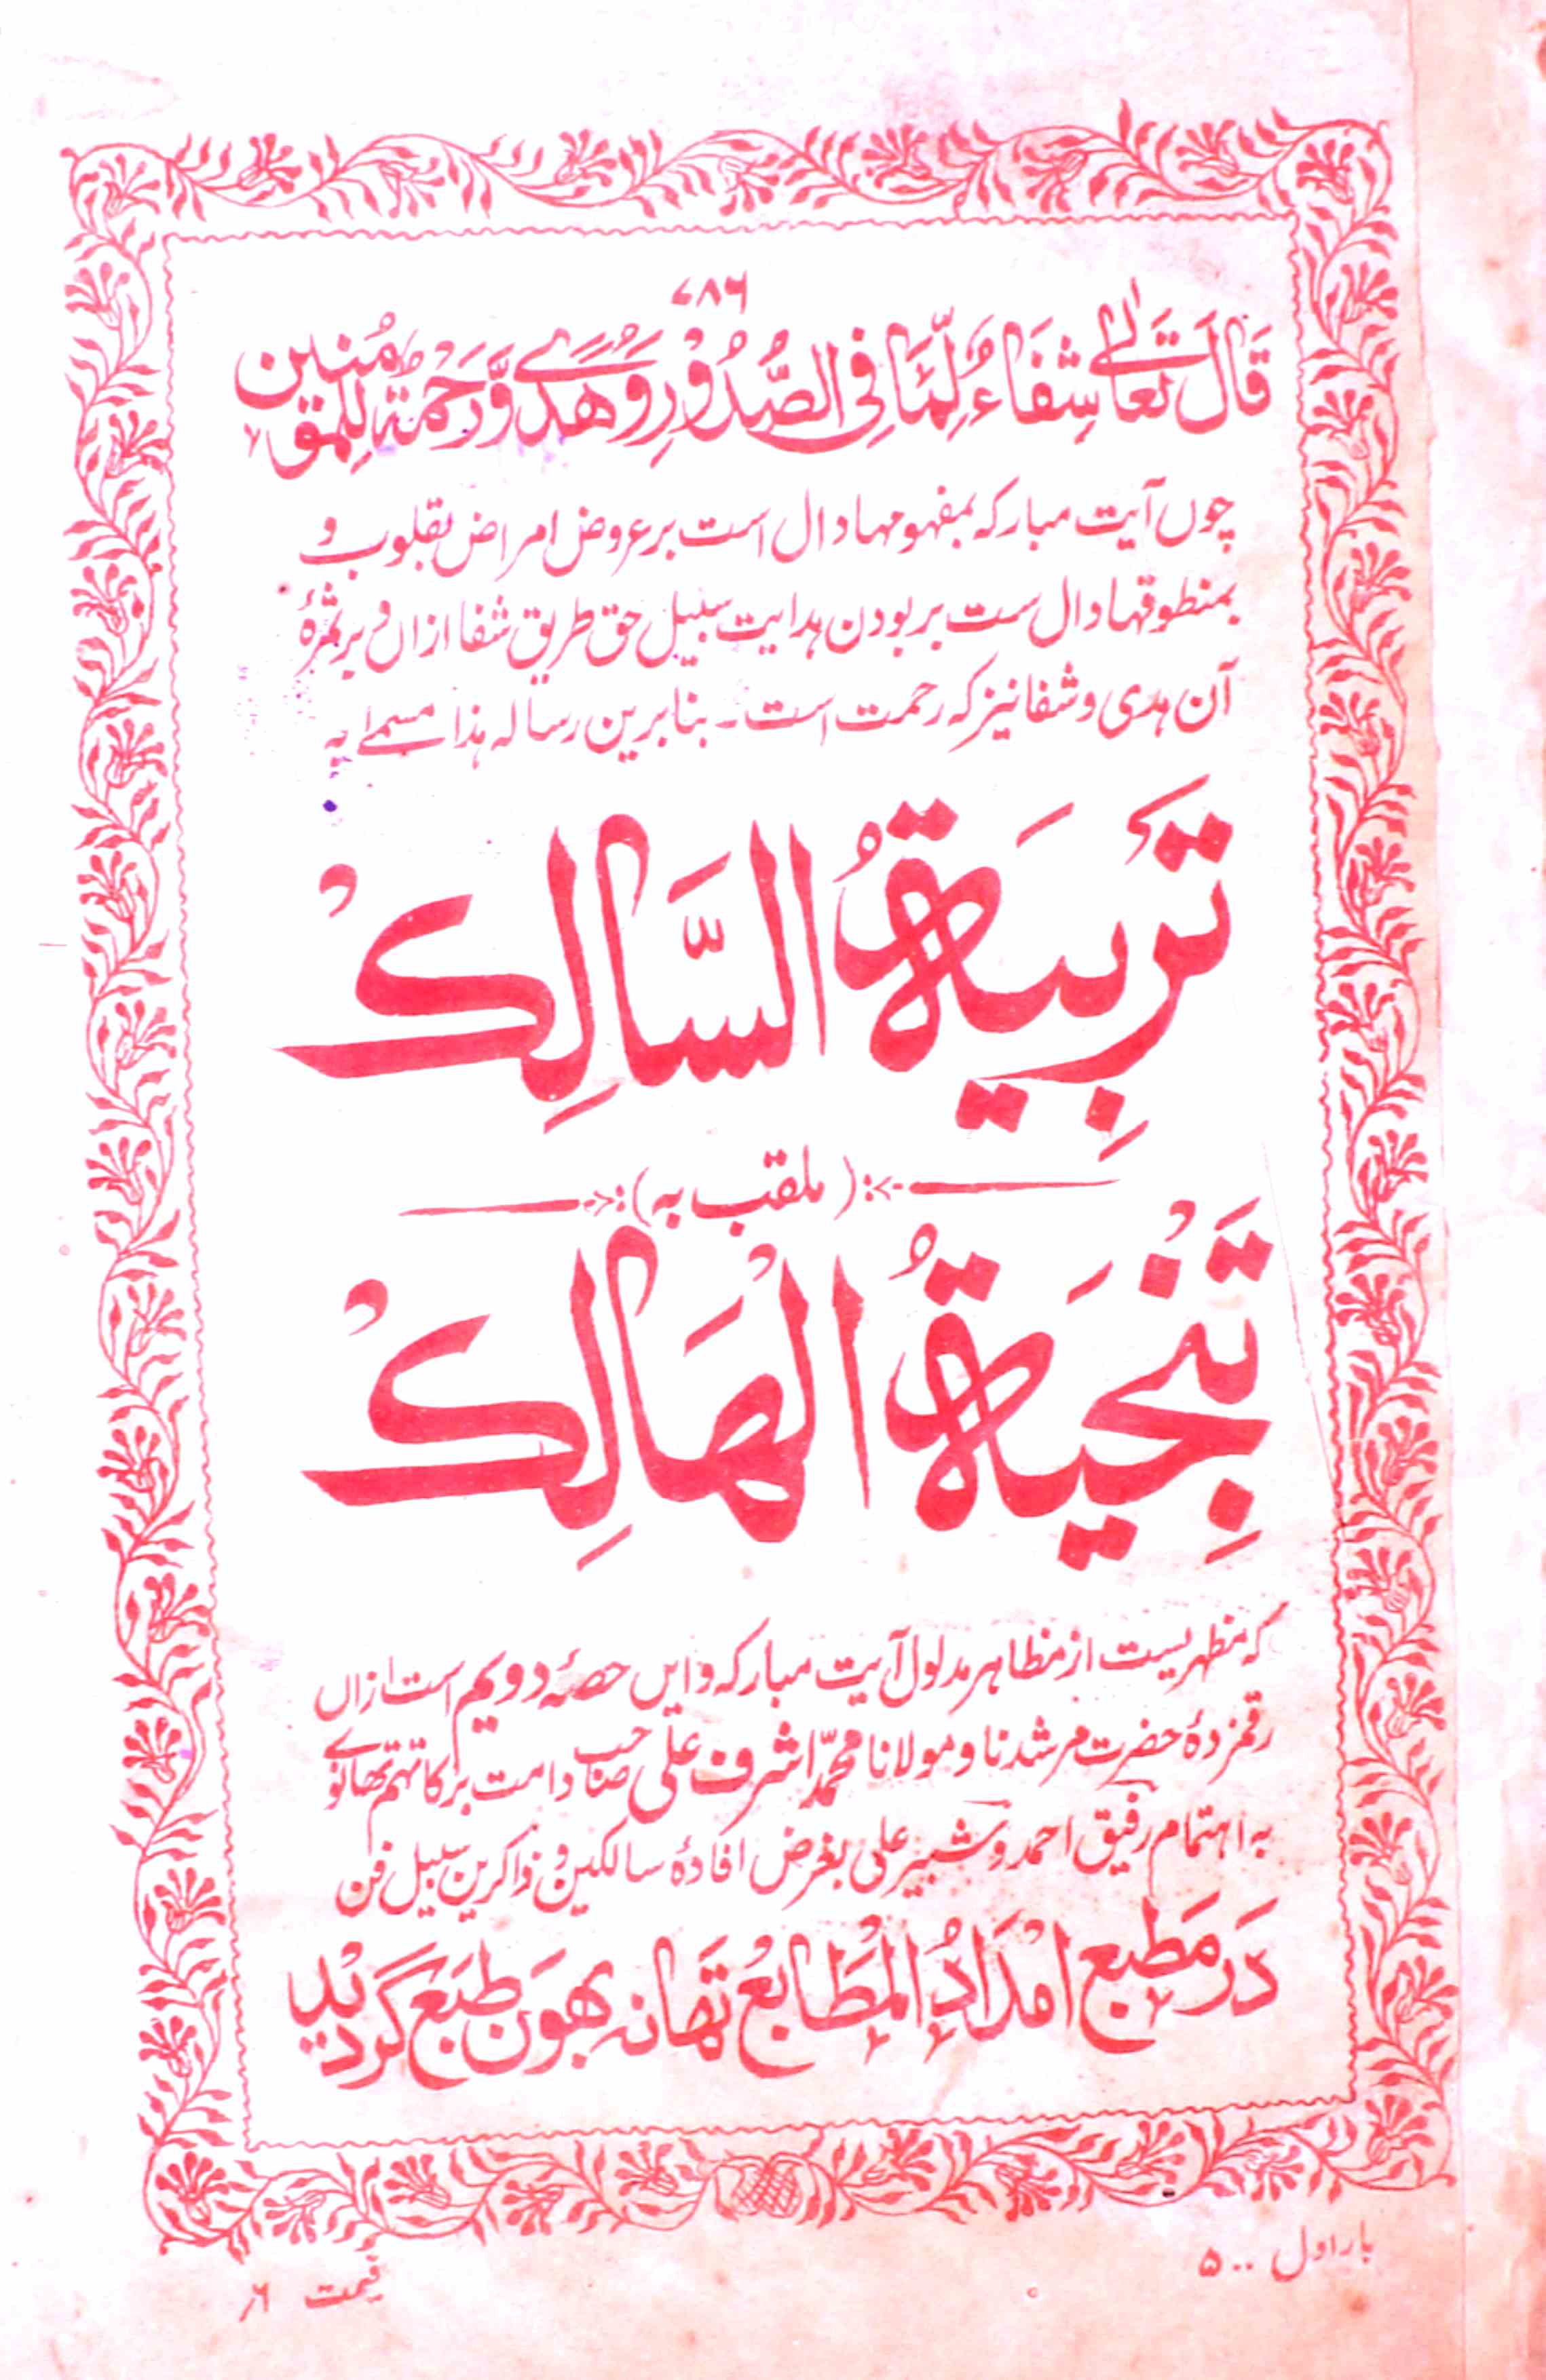 ۷۸۶
قَالَ تَعَالٰے شِفَاءٌ لِّمَا فِی الصُّدُوْرِ وَهُدًے وَّرَحْمَةٌ لِّلْمُؤْمِنِین
چوں آیت مبارکہ بمفہومہا دال است بر عروض امراض بقلوب و
بمنطوقہا دال ست بر بودن ہدایت سبیل حق طریق شفا ازاں و بر ثمرۂ
آن ہدی و شفا نیز کہ رحمت است۔ بنا برین رسالہ ہذا مسمے بہ
تَرْبِیَةُ السَّالِکْ
(ملقب بہ)
تَنْجِیَةُ الْهَالِکْ
کہ مظہریست از مظاہر مدلول آیت مبارکہ و ایں حصۂ دویم است ازاں
رقمزدۂ حضرت مرشدنا و مولانا محمّد اشرف علی صاحب دامت برکاتہم تھانوے
بہ اہتمام رفیق احمد و شبیر علی بغرض افادۂ سالکین و ذاکرین سبیل فن
دَر مَطبع امْدَادُ الْمَطَابعْ تَھانہ بھوَن طبَع گردْید
بار اول ۵۰۰
قیمت ۶؍